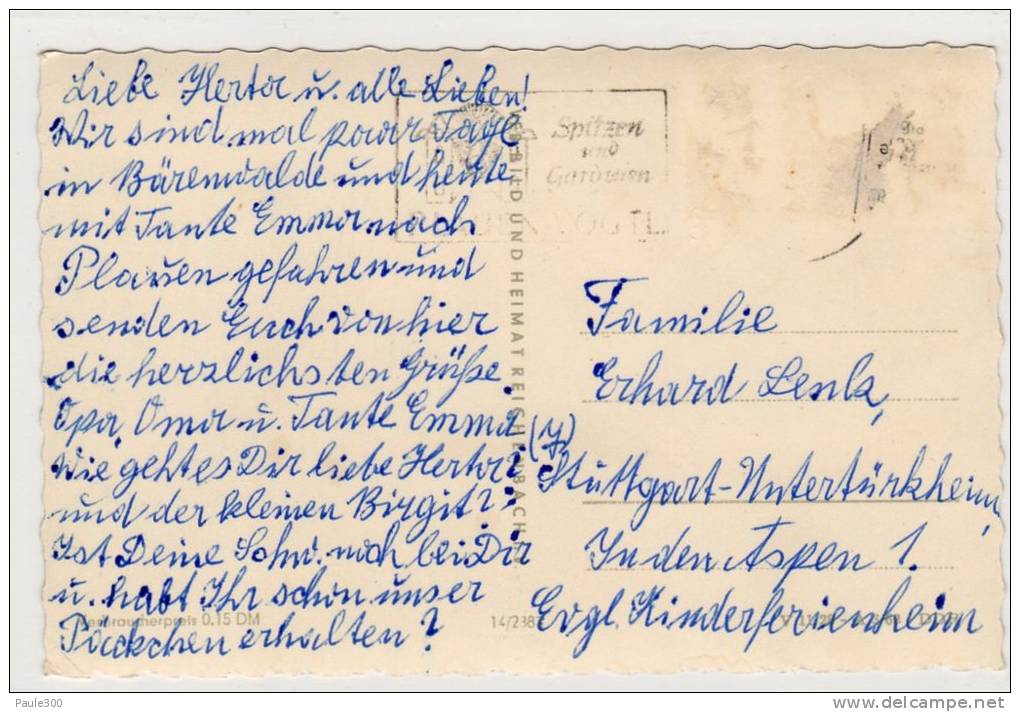 Liebe Herta u. alle Lieben!
Wir sind mal paar Tage
in Bärenwalde und heute
mit Tante Emma nach
Plauen gefahren und
senden Euch von hier
die herzlichsten Grüße
Opa, Oma u. Tante Emma.
Wie geht es Dir liebe Herta?
und der kleinen Birgit?
Ist Deine Schw. noch bei Dir
u. habt Ihr schon unser
Päckchen erhalten?
Verbraucherpreis 0.15 DM
14/238
BILD UND HEIMAT REICHENBACH
Spitzen
und
Gardinen
PLAUEN VOGTL
Familie
Erhard Lenk,
(7) Stuttgart-Untertürkheim,
In den Aspen 1.
Evgl. Kinderferienheim
Paule300
www.delcampe.net